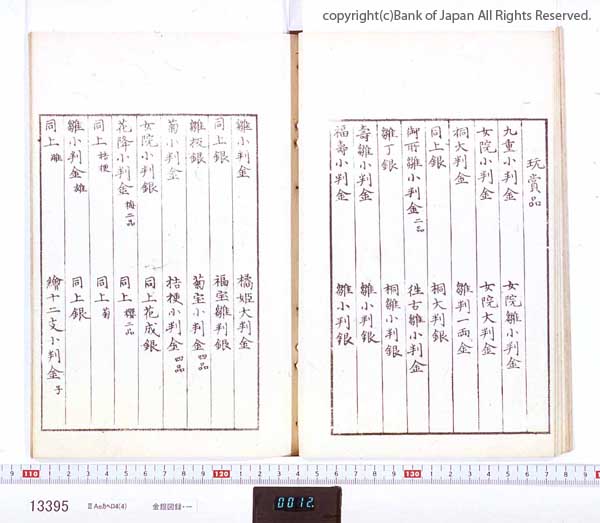 copyright(c)Bank of Japan All Rights Reserved.
玩賞品
九重小判金 女院雛小判金
女院小判金 女院大判金
桐大判金 雛判一両金
同上銀 桐大判銀
御所雛小判金二品 往古雛小判金
雛丁銀 桐雛小判銀
壽雛小判金 雛小判銀
福壽小判金 雛小判銀
雛小判金 橘姫大判金
同上銀 福宝雛判銀
雛板銀 菊宝小判金四品
菊小判金 桔梗小判金四品
女院小判銀 同上花成銀
花降小判金梅二品 同上櫻二品
同上桔梗 同上菊
雛小判金雄 同上銀
同上雌 繪十二支小判金子
9 110 1 2 3 4 5 6 7 8 9 120 1 2 3 4 5 6 7 8 9 130
13395 ⅡAaあへD4(4) 金銀図録・一
0012.